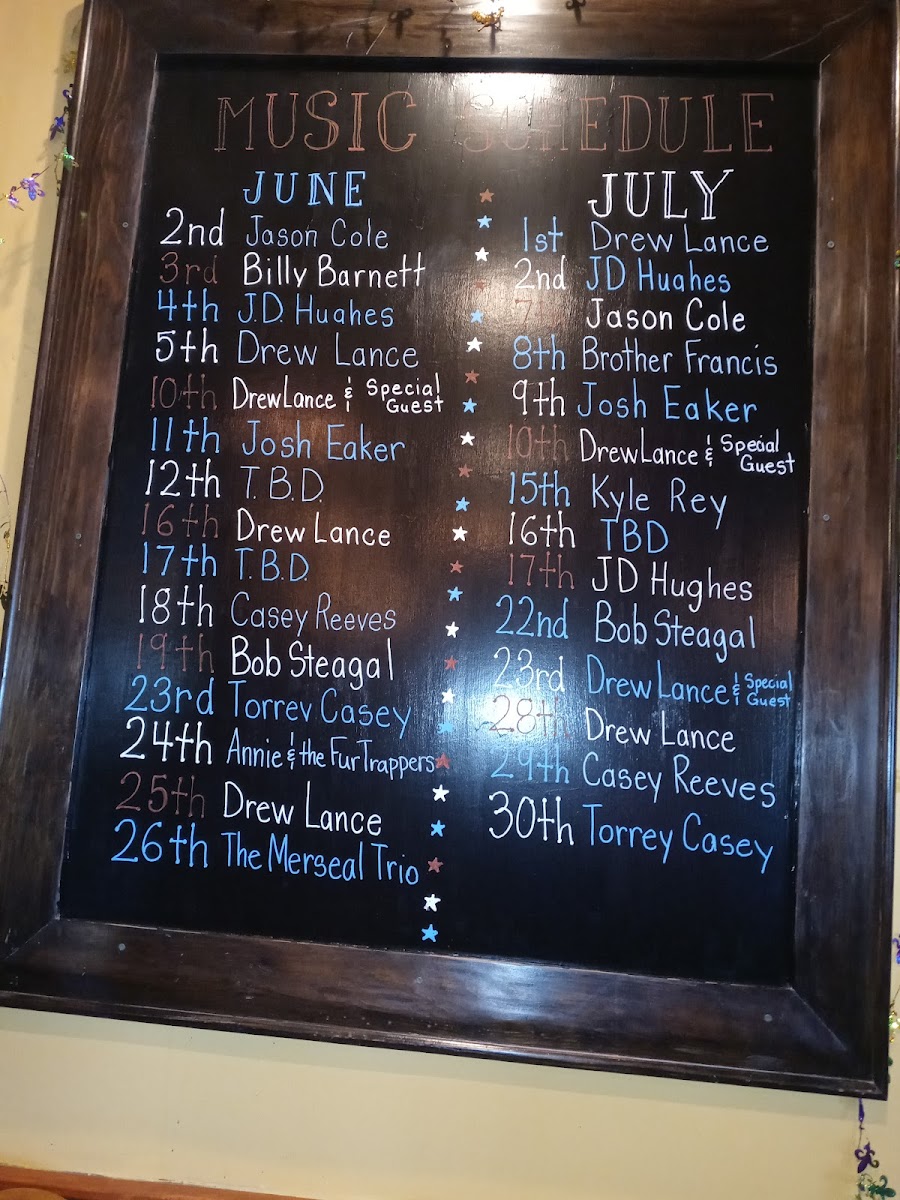 MUSIC SCHEDULE
JUNE
2nd Jason Cole
3rd Billy Barnett
4th J.D. Hughes
5th Drew Lance
10th Drew Lance & Special Guest
11th Josh Eaker
12th T.B.D.
16th Drew Lance
17th T.B.D.
18th Casey Reeves
19th Bob Steagal
23rd Torrey Casey
24th Annie & the Fur Trappers
25th Drew Lance
26th The Merseal Trio
JULY
1st Drew Lance
2nd JD Hughes
7th Jason Cole
8th Brother Francis
9th Josh Eaker
10th Drew Lance & Special Guest
15th Kyle Rey
16th TBD
17th JD Hughes
22nd Bob Steagal
23rd Drew Lance & Special Guest
28th Drew Lance
29th Casey Reeves
30th Torrey Casey